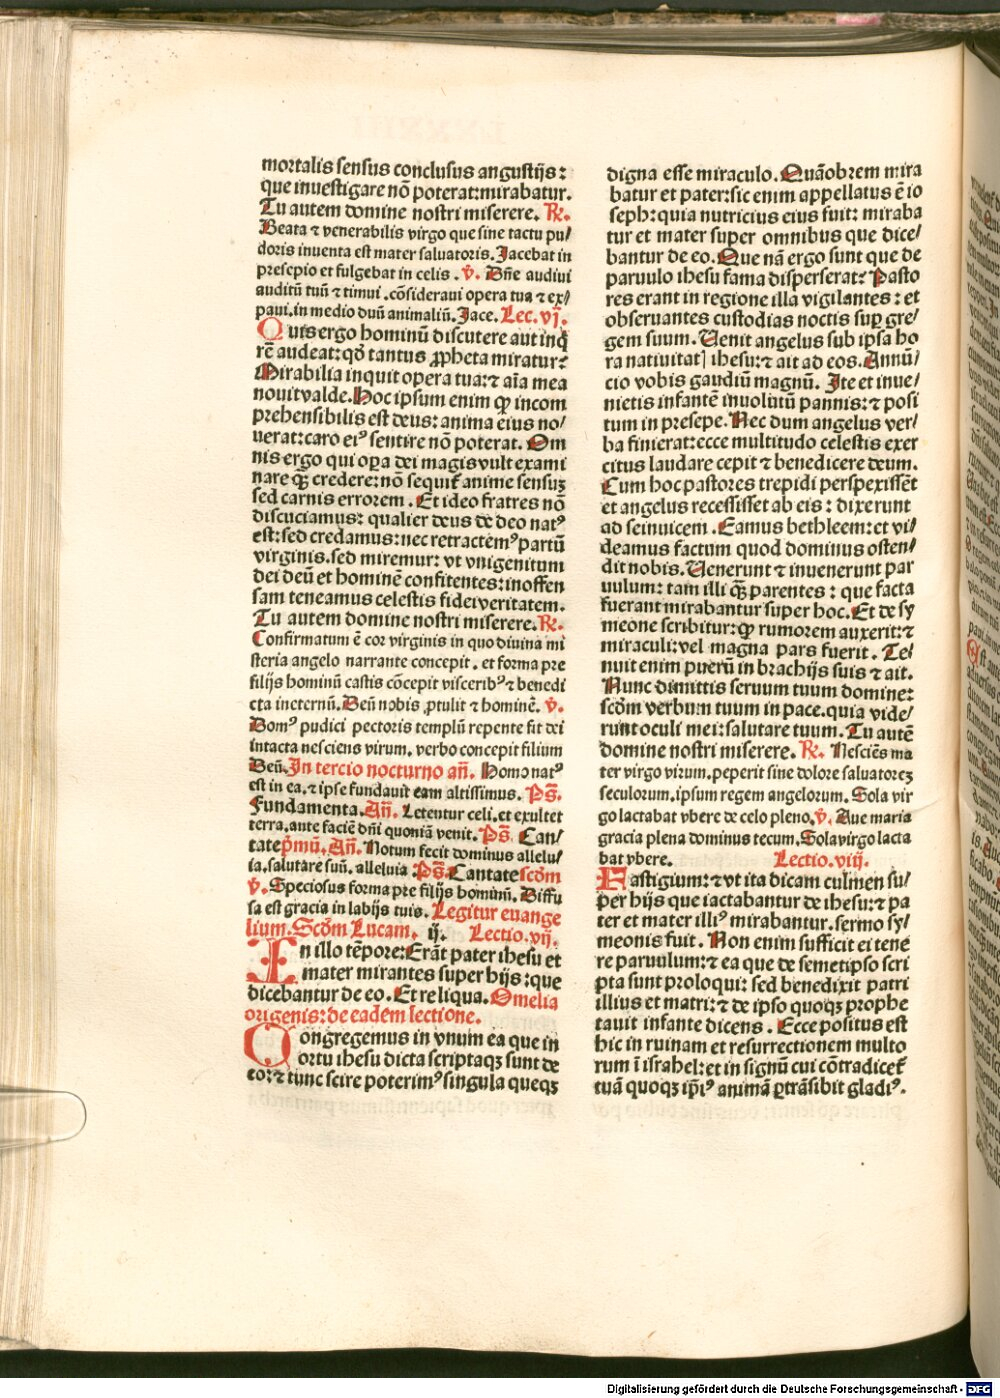 mortalis sensus conclusus angustijs:
que inuestigare nō poterat:mirabatur.
Tu autem domine nostri miserere. ℟.
Beata ⁊ venerabilis virgo que sine tactu pu/
doris inuenta est mater saluatoris. Jacebat in
presepio et fulgebat in celis. ℣. Dñe audiui
auditū tuū ⁊ timui. cōsideraui opera tua ⁊ ex/
paui. in medio duū animaliū. Jace. Lec. vj.
Quis ergo hominū discutere aut inq̄
rē audeat: qđ tantus ꝓpheta miratur?
Mirabilia inquit opera tua: ⁊ aīa mea
nouit valde. Hoc ipsum enim ꝙ incom
prehensibilis est deus: anima eius no/
uerat: caro eiꝰ sentire nō poterat. Om
nis ergo qui oꝑa dei magis vult exami
nare ꝙ̄ credere: nō sequit᷑ anime sensuꝫ
sed carnis errorem. Et ideo fratres nō
discuciamus: qualier deus de deo natꝰ
est: sed credamus: nec retractemꝰ partū
virginis. sed miremur: vt vnigenitum
dei deū et hominē confitentes: inoffen
sam teneamus celestis fidei veritatem.
Tu autem domine nostri miserere. ℟.
Confirmatum ē cor virginis in quo diuina mi
steria angelo narrante concepit. et forma pre
filijs hominū castis cōcepit visceribꝰ ⁊ benedi
cta ineternū. Deū nobis ꝓtulit ⁊ hominē. ℣.
Domꝰ pudici pectoris templū repente fit dei
intacta nesciens virum. verbo concepit filium
Deū. In tercio nocturno añ. Homo natꝰ
est in ea. ⁊ ipse fundauit eam altissimus. Pš.
Fundamenta. Añ. Letentur celi. et exultet
terra. ante faciē dñi quoniā venit. Pš. Can/
tate pͥmū. Añ. Notum fecit dominus allelu/
ia. salutare suū. alleluia. Pš. Cantate scđm
℣. Speciosus forma pre filijs hominū. Diffu
sa est gracia in labijs tuis. Legitur euange
lium. Scđm Lucam. ij. Lectio. vij.
In illo tēpore: Erāt pater ihesu et
mater mirantes super hijs: que
dicebantur de eo. Et reliqua. Omelia
origenis: de eadem lectione.
Congregemus in vnum ea que in
ortu ihesu dicta scriptaqꝫ sunt de
eo: ⁊ tunc scire poterimꝰ singula queqꝫ
digna esse miraculo. Quāobrem mira
batur et pater: sic enim appellatus ē io
seph: quia nutricius eius fuit: miraba
tur et mater super omnibus que dice/
bantur de eo. Que nā ergo sunt que de
paruulo ihesu fama disperserat? Pasto
res erant in regione illa vigilantes: et
obseruantes custodias noctis suꝑ gre/
gem suum. Uenit angelus sub ipsa ho
ra natiuitatꝭ ihesu: ⁊ ait ad eos. Annū/
cio vobis gaudiū magnū. Ite et inue/
nietis infantē inuolutū pannis: ⁊ posi
tum in presepe. Nec dum angelus ver/
ba finierat: ecce multitudo celestis exer
citus laudare cepit ⁊ benedicere deum.
Cum hoc pastores trepidi perspexissēt
et angelus recessisset ab eis: dixerunt
ad seinuicem. Eamus bethleem: et vi/
deamus factum quod dominus osten/
dit nobis. Uenerunt ⁊ inuenerunt par
uulum: tam illi ꝙ̄ parentes: que facta
fuerant mirabantur super hoc. Et de sy
meone scribitur: ꝙ rumorem auxerit: ⁊
miraculi: vel magna pars fuerit. Te/
nuit enim puerū in brachijs suis ⁊ ait.
Nunc dimittis seruum tuum domine:
scđm verbum tuum in pace. quia vide/
runt oculi mei: salutare tuum. Tu autē
domine nostri miserere. ℟. Nesciēs ma
ter virgo virum. peperit sine dolore saluatoreꝫ
seculorum. ipsum regem angelorum. Sola vir
go lactabat vbere de celo pleno. ℣. Aue maria
gracia plena dominus tecum. Sola virgo lacta
bat vbere. Lectio. viij.
Fastigium: ⁊ vt ita dicam culmen su/
per hijs que iactabantur de ihesu: ⁊ pa
ter et mater illiꝰ mirabantur. sermo sy/
meonis fuit. Non enim sufficit ei tene
re paruulum: ⁊ ea que de semetipso scri
pta sunt proloqui: sed benedixit patri
illius et matri: ⁊ de ipso quoqꝫ prophe
tauit infante dicens. Ecce positus est
hic in ruinam et resurrectionem multo
rum ī israhel: et in signū cui cōtradicet᷑
tuā quoqꝫ ip̄iꝰ animā ꝑtrāsibit gladiꝰ.
Digitalisierung gefördert durch die Deutsche Forschungsgemeinschaft - DFG